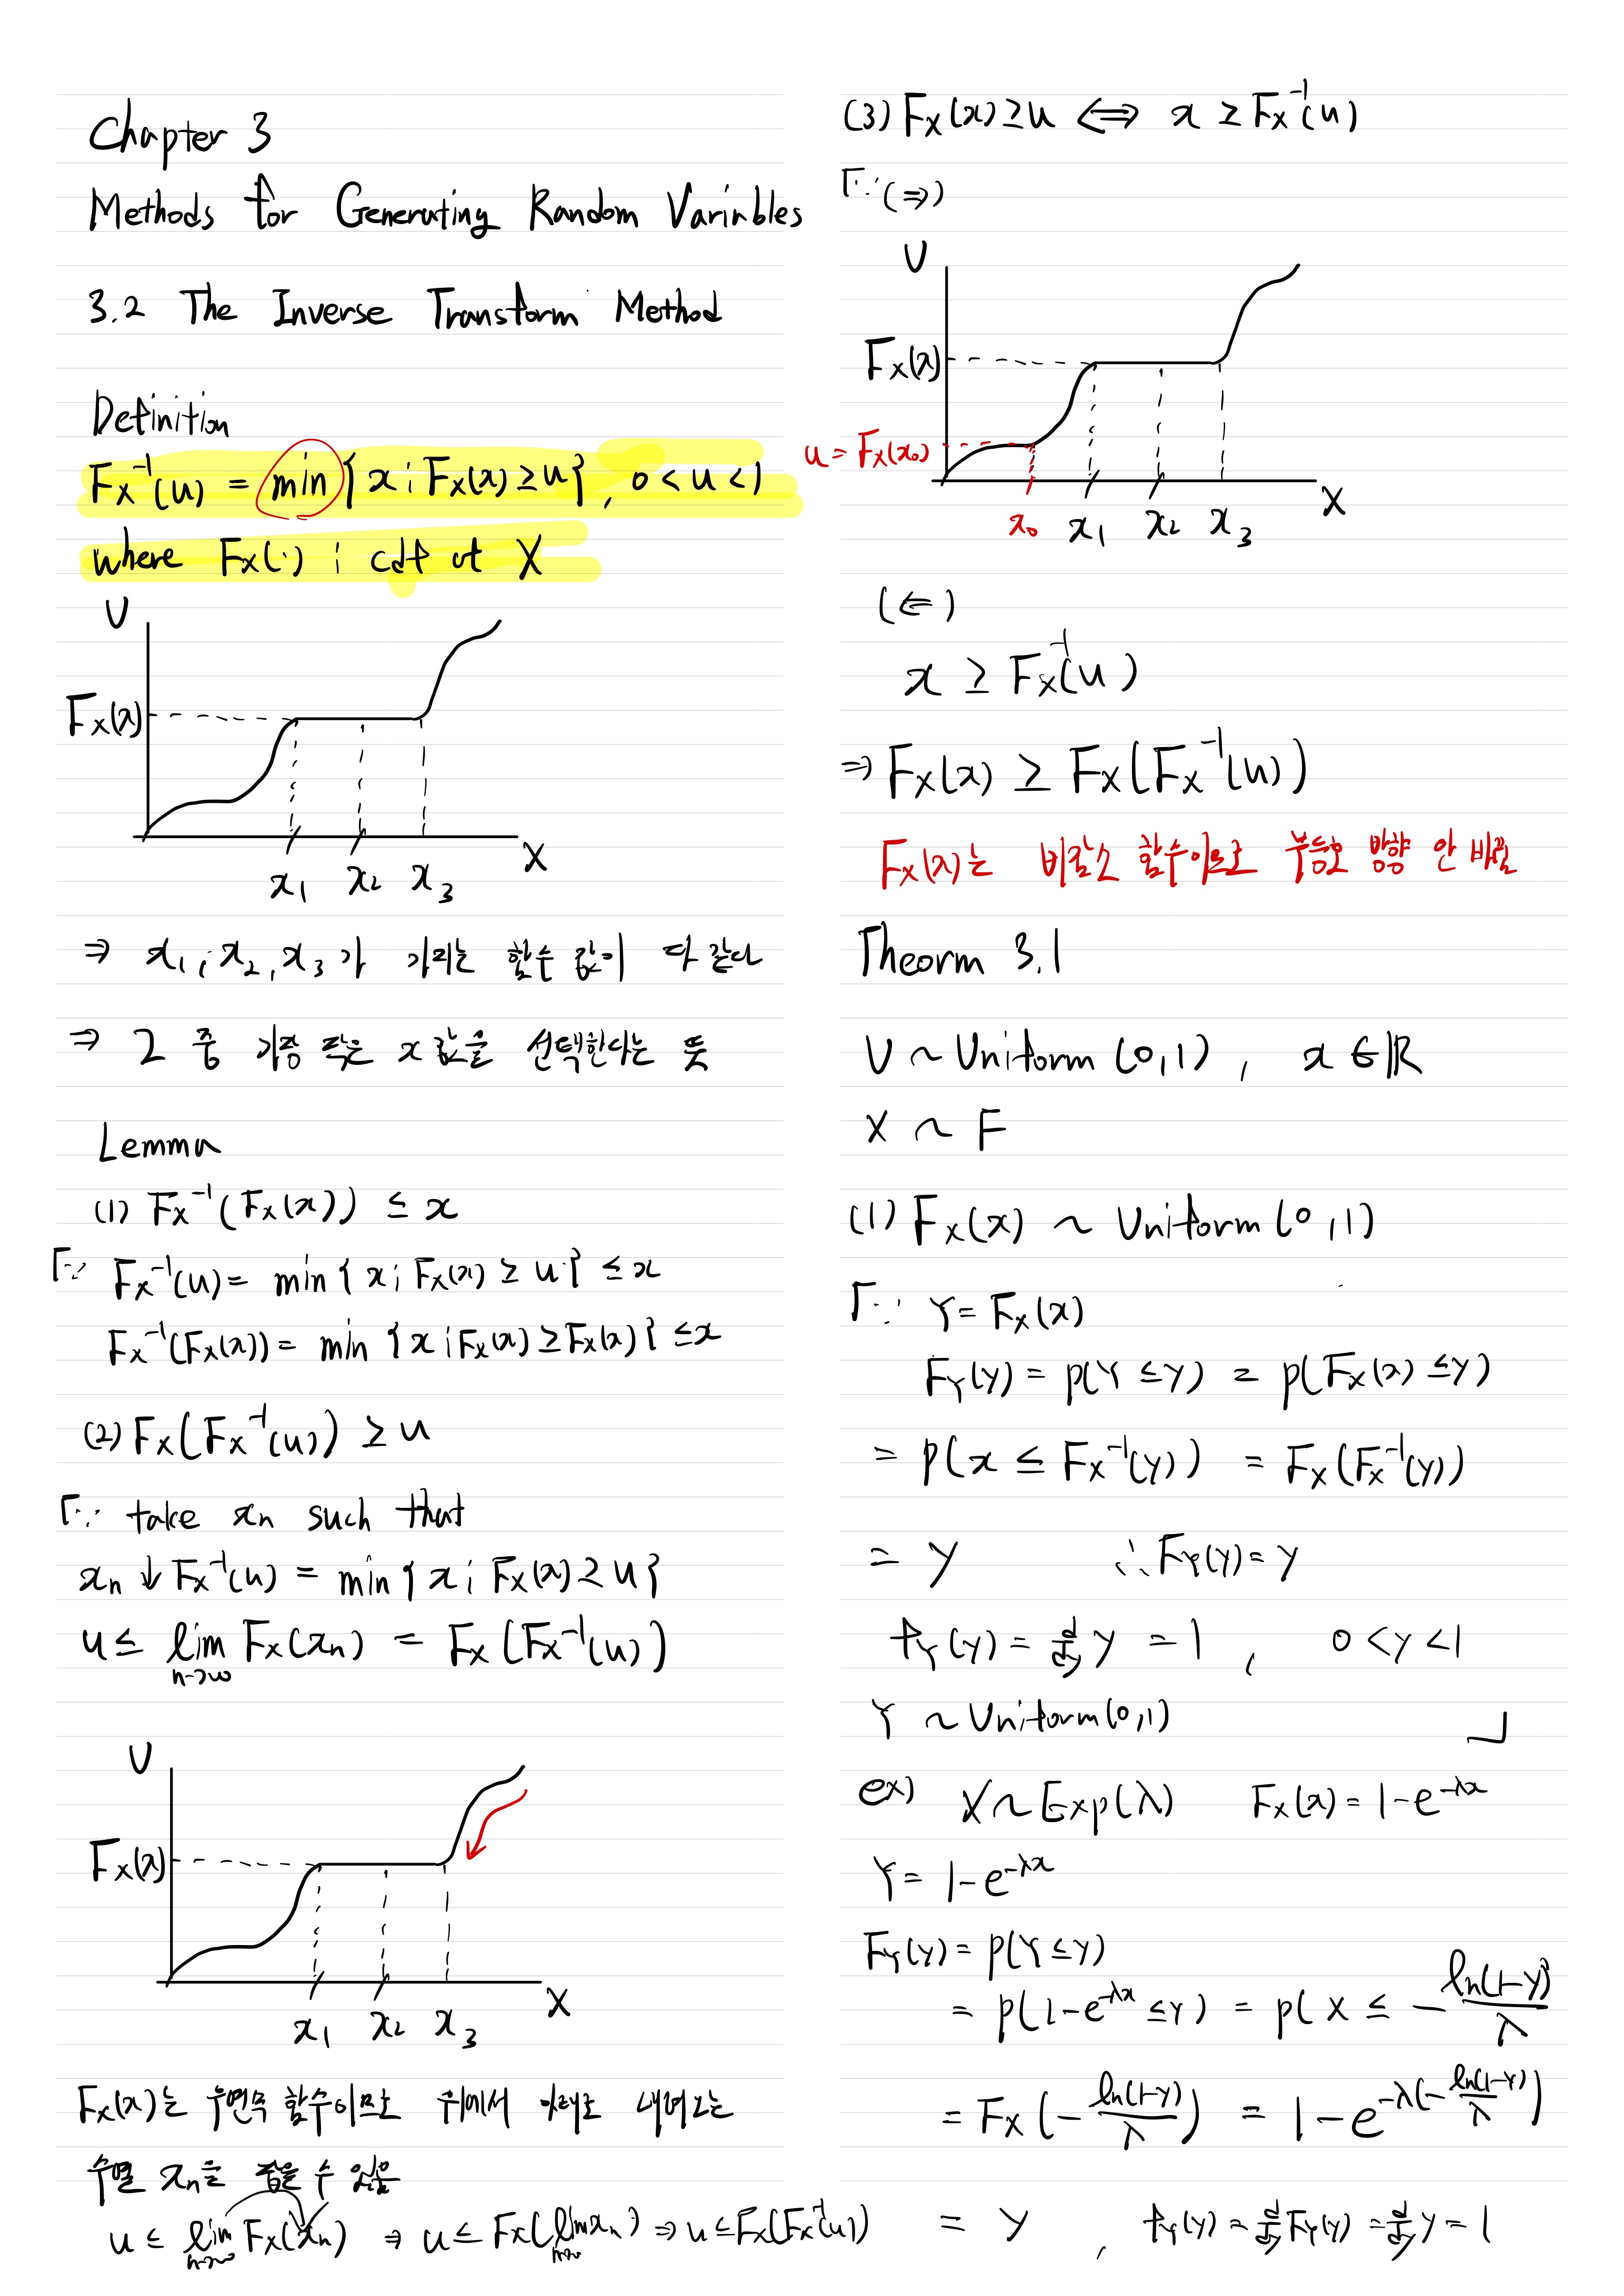 Chapter 3
Methods for Generating Random Variables
3.2 The Inverse Transform Method
Definition
Fx⁻¹(u) = min{x ; Fx(x) ≥ u}, 0 < u < 1
where Fx(·) ; cdf of X
U
Fx(x)
X
x₁ x₂ x₃
⇒ x₁, x₂, x₃ 가 가지는 함수 값이 다 같다
⇒ 그 중 가장 작은 x 값을 선택한다는 뜻
Lemma
(1) Fx⁻¹(Fx(x)) ≤ x
「∵ Fx⁻¹(u) = min{x ; Fx(x) ≥ u} ≤ x
Fx⁻¹(Fx(x)) = min{x ; Fx(x) ≥ Fx(x)} ≤ x
(2) Fx(Fx⁻¹(u)) ≥ u
「∵ take xn such that
xn ↓ Fx⁻¹(u) = min{x ; Fx(x) ≥ u}
u ≤ lim n→∞ Fx(xn) = Fx(Fx⁻¹(u))
U
Fx(x)
X
x₁ x₂ x₃
Fx(x)는 우연속 함수이므로 위에서 아래로 내려오는
수열 xn을 잡을 수 있음
u ≤ lim n→∞ Fx(xn) ⇒ u ≤ Fx(lim n→∞ xn) ⇒ u ≤ Fx(Fx⁻¹(u))
(3) Fx(x) ≥ u ⟺ x ≥ Fx⁻¹(u)
「∵ (⇒)
U
Fx(x)
u = Fx(x₀)
X
x₀ x₁ x₂ x₃
(⇐)
x ≥ Fx⁻¹(u)
⇒ Fx(x) ≥ Fx(Fx⁻¹(u))
Fx(x)는 비감소 함수이므로 부등호 방향 안 바뀜
Theorm 3.1
U ~ Uniform (0,1) , x ∈ ℝ
X ~ F
(1) Fx(x) ~ Uniform (0,1)
「∵ Y = Fx(x)
FY(y) = p(Y ≤ y) = p(Fx(x) ≤ y)
= p(x ≤ Fx⁻¹(y)) = Fx(Fx⁻¹(y))
= y ∴ FY(y) = y
fY(y) = d/dy y = 1 , 0 < y < 1
Y ~ Uniform(0,1) 」
ex) X ~ Exp(λ) Fx(x) = 1 - e^-λx
Y = 1 - e^-λx
FY(y) = p(Y ≤ y)
= p(1 - e^-λx ≤ y) = p( X ≤ - ln(1-y)/λ
= Fx(- ln(1-y)/λ) = 1 - e^-λ(- ln(1-y)/λ)
= y , fY(y) = d/dy FY(y) = d/dy y = 1